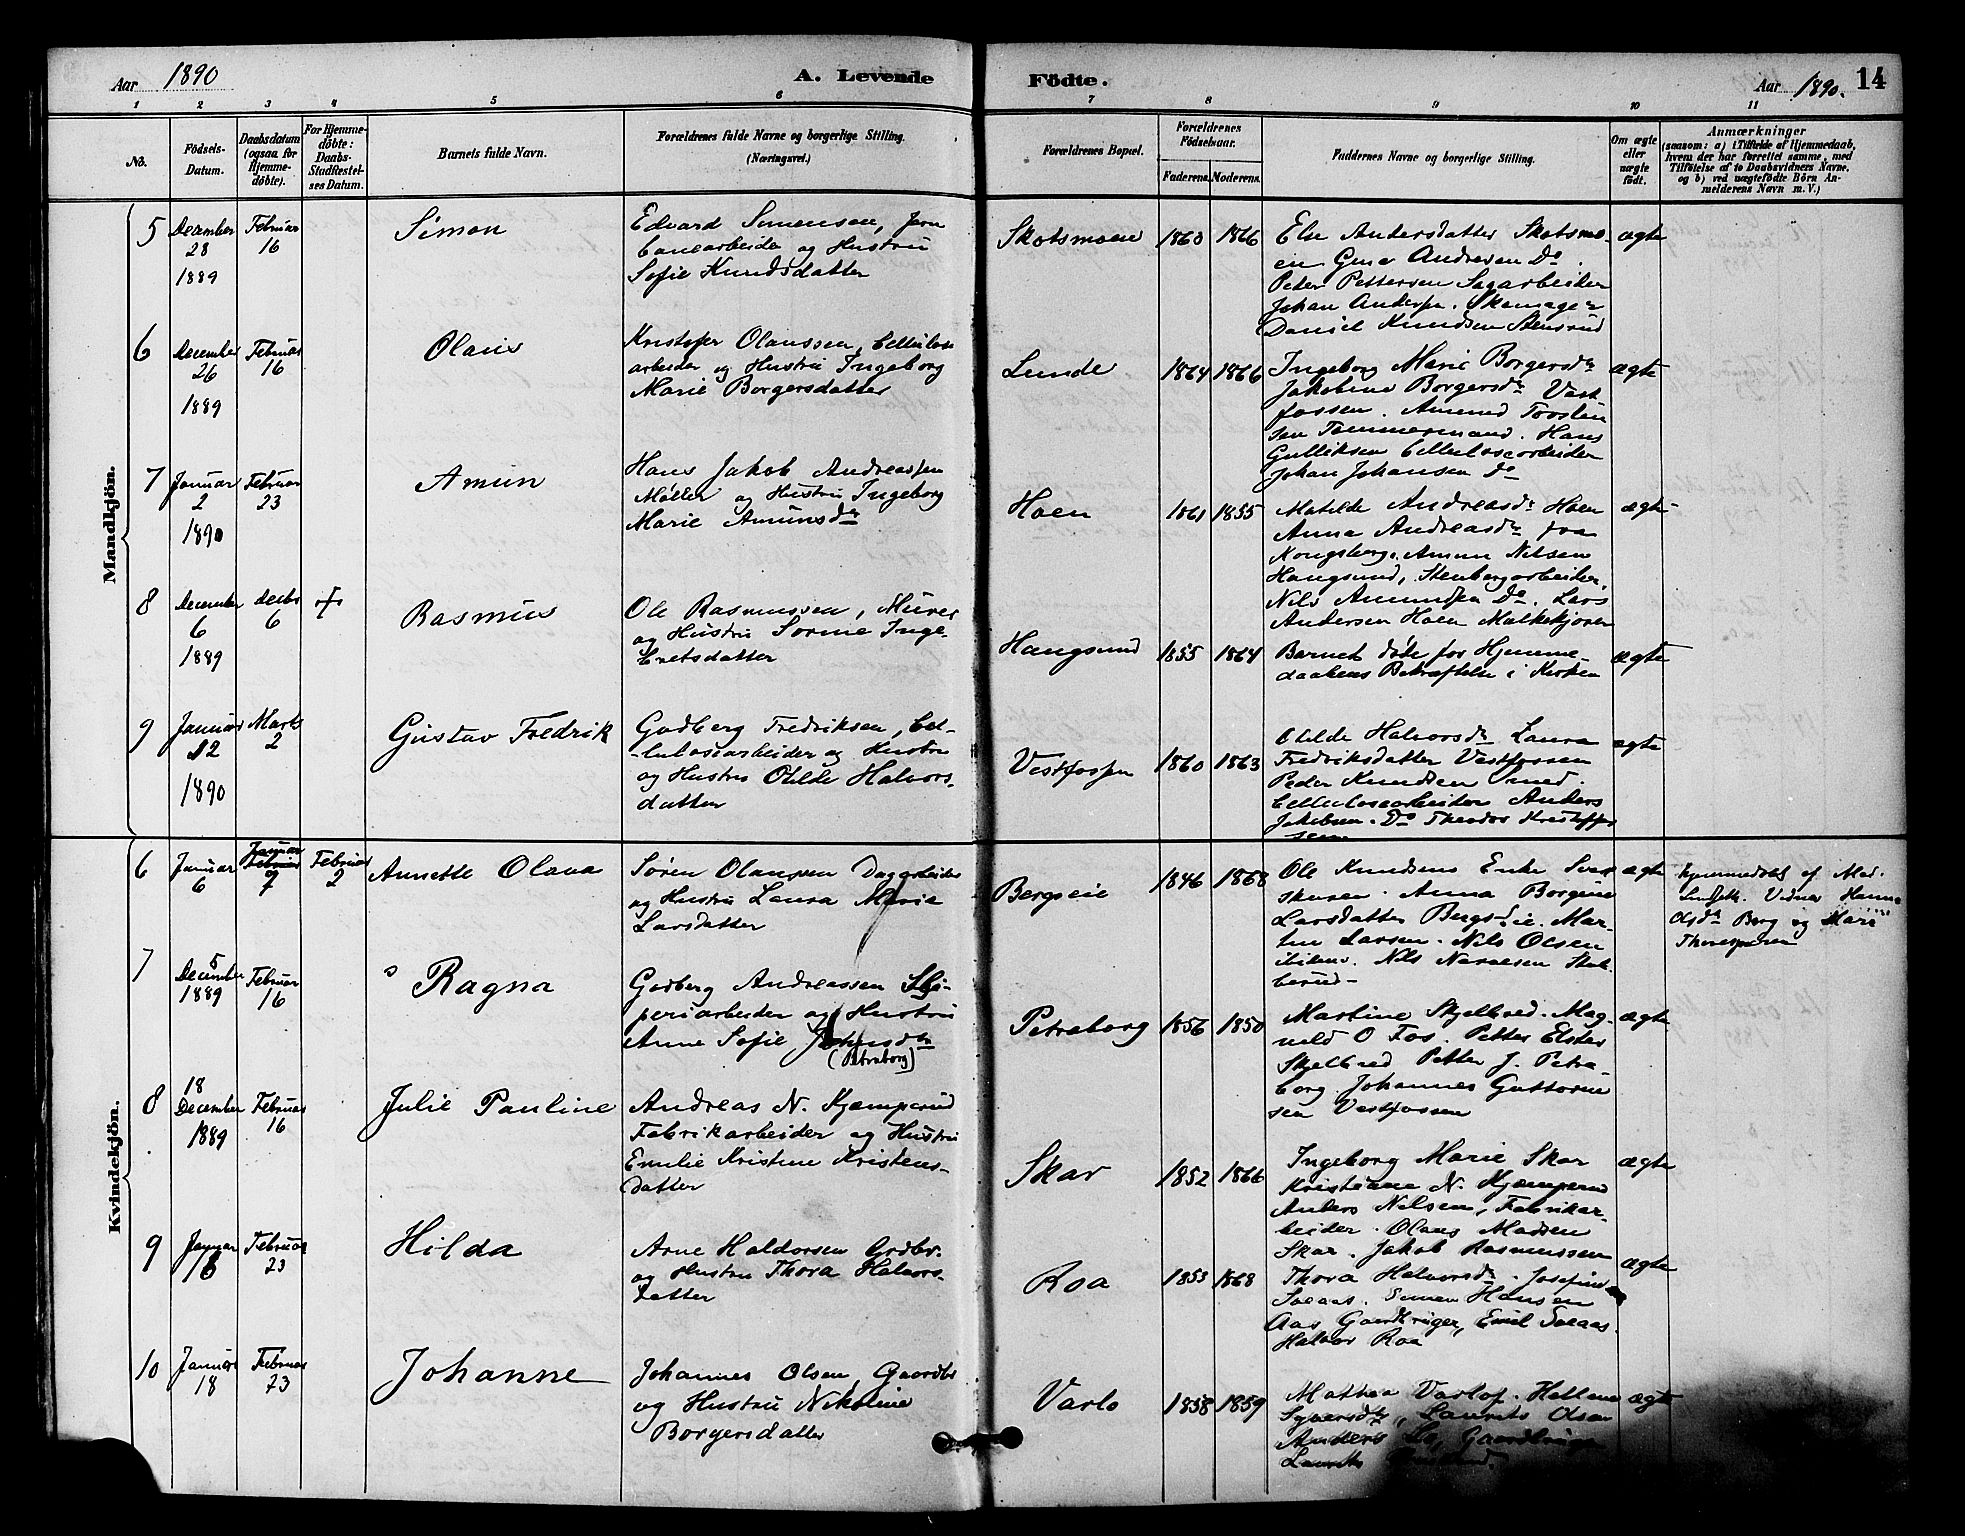 Aar 1890
A. Levende
Födte.
Aar 1890.
14
1 2 3 4 5 6 7 8 9 10 11
No.
Födsels-
Datum.
Daabsdatum
(ogsaa for
Hjemme-
döbte).
For Hjemme-
döbte:
Daabs-
Stadfæstel-
ses Datum.
Barnets fulde Navn.
Forældrenes fulde Navne og borgerlige Stilling.
(Næringsvei.)
Forældrenes Bopæl.
Forældrenes
Födselsaar.
Faderens. Moderens.
Faddernes Navne og borgerlige Stilling.
Om ægte
eller
uægte
födt.
Anmærkninger
(saasom: a) i Tilfælde af Hjemmedaab,
hvem der har forrettet samme, med
Tilföielse af to Daabsvidners Navne,
og b) ved uægtefödte Börn An-
melderens Navn m. V.)
Mandkjön.
5
December
28
1889
Februar
16
Simon
Edvard Simensen, Jern
banearbeider og Hustru
Sofie Knudsdatter
Skotsmoen
1860 1866
Else Andersdatter Skotsmo-
en Andresen Do.
Peder Pettersen Sagarbeider
Johan Andersen. Skomager
Daniel Knudsen Stensrud
ægte
6
December
26
1889
Februar
16
Olaus
Kristofer Olaussen, Cellulose
arbeider og Hustru Ingeborg
Marie Borgersdatter
Lunde
1864 1866
Ingeborg Marie Borgersdr
Jakobine Borgersdr Vest
fossen. Amund Torsten
sen Tømmermand. Hans
Gulliksen Cellulosearbeider
Johan Johansen Do
ægte
7
Januar
2
1890
Februar
23
Amun
Hans Jakob Andreassen
Møller og Hustru Ingeborg
Marie Amunsdr
Hoen
1861 1855
Matilde Andreasdr Hoen
Anna Andreasdr fra
Kongsberg. Amun Nilsen
Haugsund, Stenbergarbeider.
Nils Amundsen Do. Lars
Andersen Hoen Melkekjører
ægte
8
December
6
1889
decbr
6
Rasmus
Ole Rasmussen, Murer
og Hustru Inge-
bretsdatter
Haugsund
1855 1864
Barnet døde før Hjemme-
daabens Bekræftelse i Kirken
ægte
9
Januar
12
1890
Marts
2
Gustav Fredrik
Gudberg Fredriksen, Cel-
lulosearbeider og Hustru
og Hustru Otilde Halvors-
datter
Vestfossen
1860 1863
Otilde Halvorsdr Laura
Fredriksdatter Vestfossen
Peder Knudsen
Cellulosearbeider Anders
Jakobsen. Do Theodor Kristoffer
sen
ægte
Kvindekjön.
6
Januar
6
Januar
Februar
7
Februar
2
Annette Olava
Søren Olaussen Dagarbeider
og Hustru Laura Marie
Larsdatter
Bergseie
1846 1868
Ole Knudsens Enke
Anna Borgine
Larsdatter Bergseie. Mar-
tin Larsen. Nils Olsen
Nils
ægte
Hjemmedøbt af
Vidner Hanna
Olsdr Berg og Mari
7
December
5
1889
Februar
16
Ragna
Gudberg Andreassen Sli-
periarbeider og Hustru
Anne Sofie Johnsdtr
(Petraborg)
Petraborg
1856 1850
Martine Skjelbred. Mag-
nild O Fos. Petter Elster
Skjelbred Petter J. Petra-
borg Johannes Guttorm
sen Vestfossen
ægte
8
18
December
1889
Februar
16
Julie Pauline
Andreas N. Kjæmperud
Fabrikarbeider og Hustru
Emilie Kristine Kristens-
datter
Skar
1852 1866
Ingeborg Marie Skar
Kristiane N. Kjæmperud
Anders Nilsen, Fabrikar-
beider. Olaus Madsen
Skar. Jakob Rasmussen
ægte
9
Januar
16
Februar
23
Hilda
Arne Haldorsen Grdbr.
og Hustru Thora Halvors-
datter
Roa
1853 1868
Thora Halvorsdr. Josefine
Hansen
Aas Gaardbruger, Emil
Halvor Roa
ægte
10
Januar
18
Februar
23
Johanne
Johannes Olsen, Gaardbr
og Hustru Nikoline
Borgersdatter
Varlo
1858 1859
Mathea Varlo. Hellene
Syversdr, Laurits Olsen
Anders Gaardbruger
Laurits
ægte